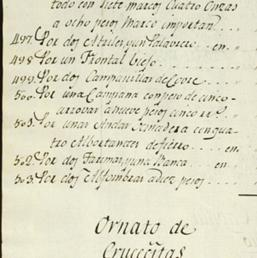 todo con siete marcos Cuatro Onzas
a ocho pesos Marco importan
497. Por dos Atriles, y un Palabrero en
498. Por un Frontal Viejo
499. Por dos Campanillas de Cobre
500. Por una Campana con peso de cinco
arrobas a nueve pesos
501. Por unas Andas con quatro
de fierro en
502. Por dos y una Manca en
503. Por dos Alfombras a diez pesos
Ornato de
Crucecitas